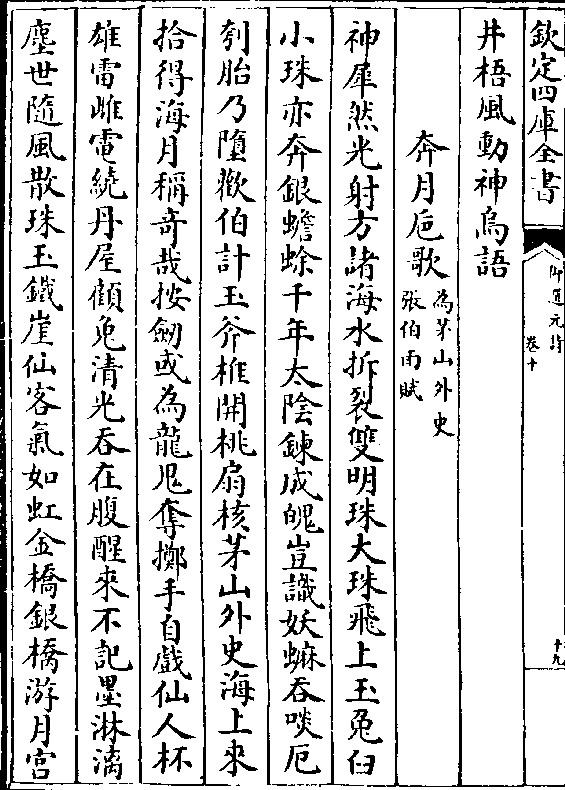 欽定四庫全書
御選元詩
卷十
十九
井梧風動神烏語
奔月巵歌
為茅山外史
張伯雨賦
神犀然光射方諸海水拆裂雙明珠大珠飛上玉兔臼
小珠亦奔銀蟾蜍千年太陰鍊成魄豈識妖蟆吞啖厄
刳胎乃墮歡伯計玉斧椎開桃扇核茅山外史海上來
拾得海月稱奇哉按劒或為龍鬼奪擲手自戲仙人杯
雄雷雌電繞丹屋顧兔清光吞在腹醒來不記墨淋漓
塵世隨風散珠玉鐵崖仙客氣如虹金橋銀橋游月宮